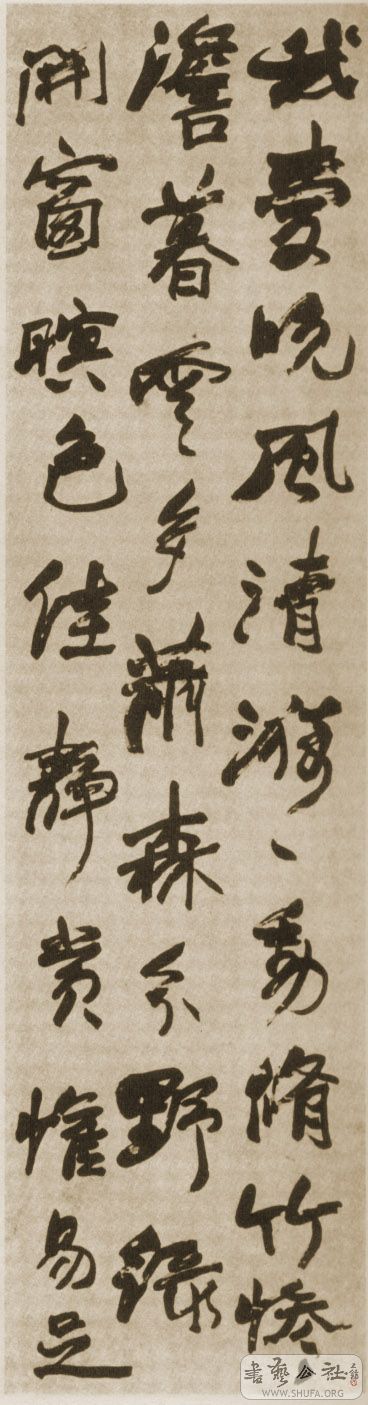 我愛晚風清漪〻動脩竹慘
澹暮雲多蕭森分野綠
開窗暝色佳靜賞懽易足
書藝公社
WWW.SHUFA.ORG